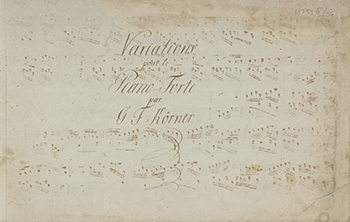 Variations
pour le
Piano Forte
par
G F Körner